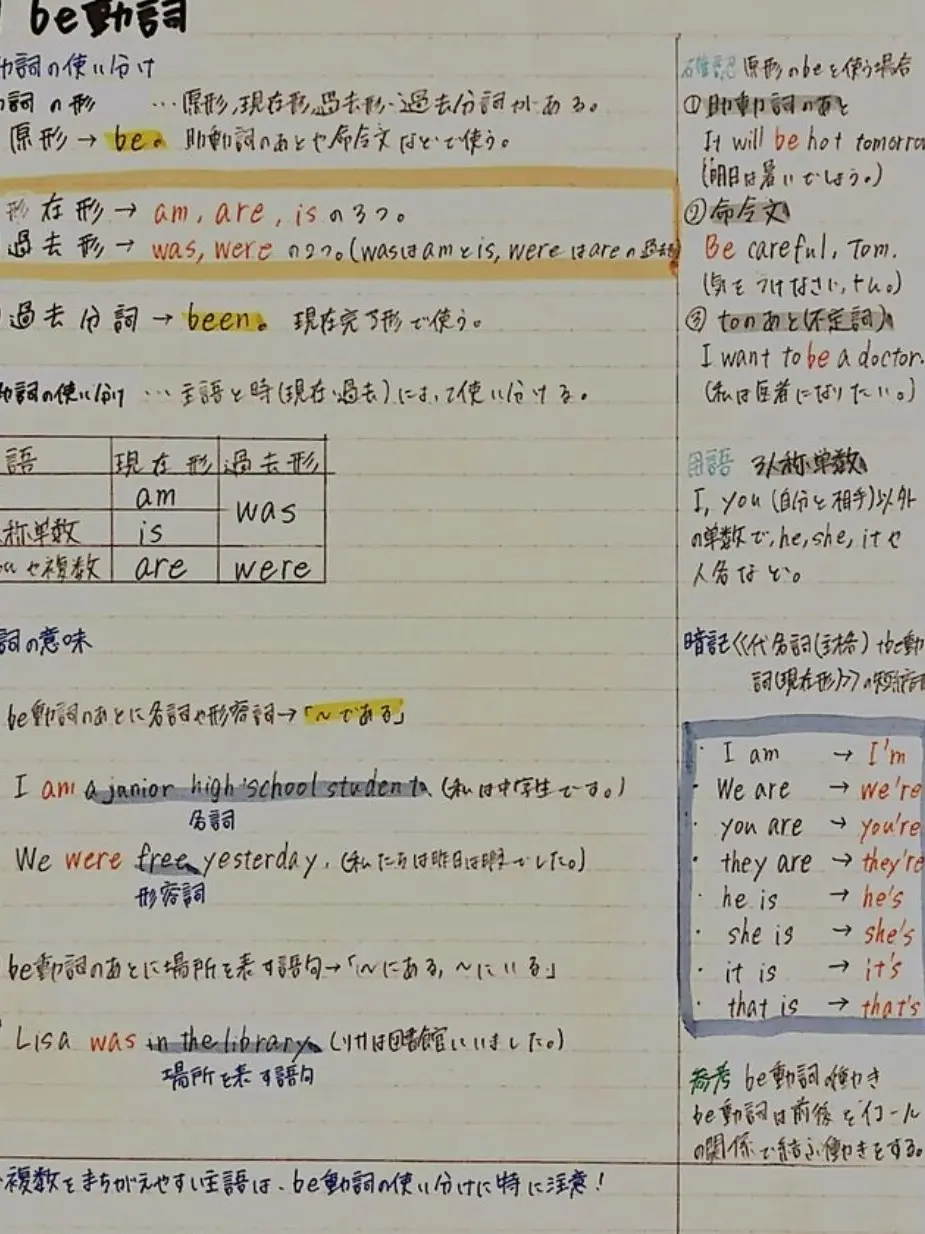 be動詞
動詞の使い分け
詞の形 …原形,現在形,過去形・過去分詞がある。
原形→be。助動詞のあとや命令文などで使う。
形 在形→am, are, isの3つ。
過去形→was, wereの2つ。(wasはamとis, wereはareの過去
過去分詞→been。現在完了形で使う。
動詞の使い分け …主語と時(現在・過去)によって使い分ける。
語 現在形 過去形
am was
称単数 is
や複数 are were
詞の意味
be動詞のあとに名詞や形容詞→「〜である」
I am a junior high school student. (私は中学生です。)
名詞
We were free yesterday. (私たちは昨日は暇でした。)
形容詞
be動詞のあとに場所を表す語句→「〜にある,〜にいる」
Lisa was in the library. (リサは図書館にいました。)
場所を表す語句
複数をまちがえやすい主語は、be動詞の使い分けに特に注意!
確認 原形のbeを使う場合
①助動詞のあと
It will be hot tomorro
(明日は暑いでしょう。)
②命令文
Be careful, Tom.
(気をつけなさい,トム。)
③toのあと(不定詞)
I want to be a doctor.
(私は医者になりたい。)
用語 3人称・単数
I, you (自分と相手)以外
の単数で,he, she, itや
人名など。
暗記《代名詞(主格)+be動
詞(現在形)》の短縮
・ I am → I'm
・ We are → we're
・ you are → you're
・ they are → they're
・ he is → he's
・ she is → she's
・ it is → it's
・ that is → that's
参考 be動詞の働き
be動詞は前後をイコール
の関係で結ぶ働きをする。